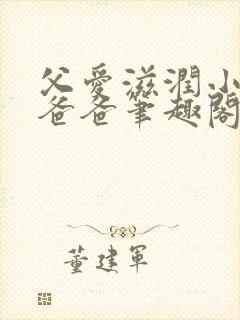 父愛滋潤小
爸爸筆趣閣
董建軍